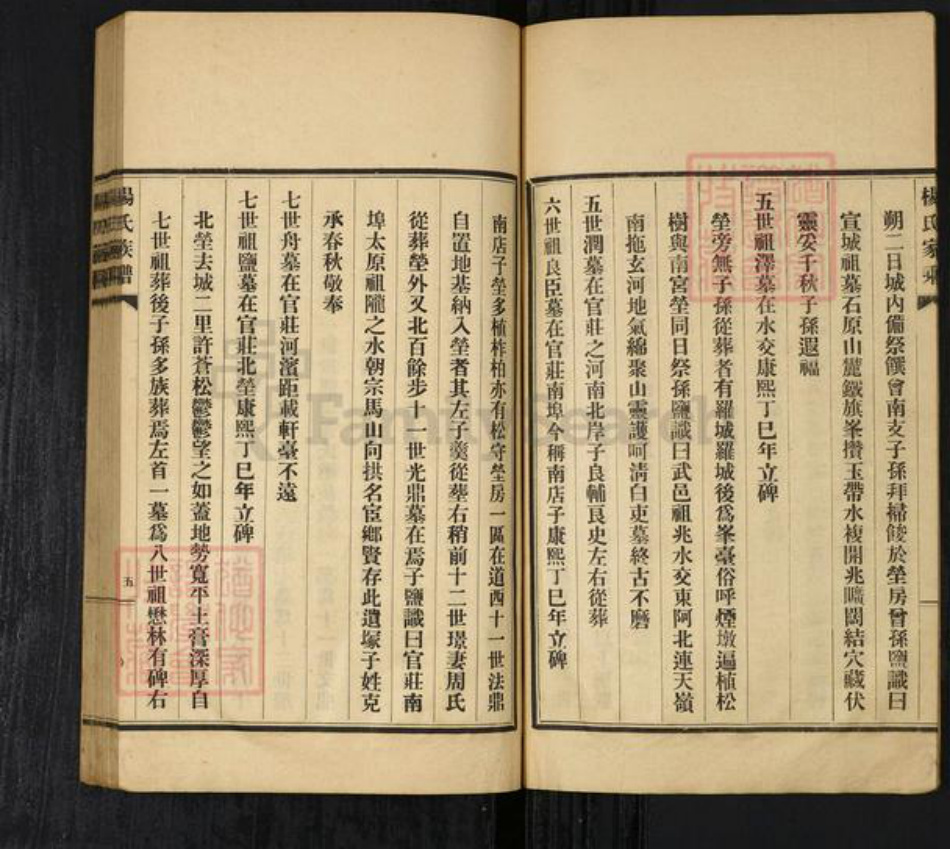 楊氏家乘
朔二日城內備祭饌曾南支子孫拜掃餕於塋房曾孫鹽識曰
宣城祖墓石原山麓鐵旗峯攢玉帶水複開兆曠闊結穴藏伏
靈妥千秋子孫遐福
五世祖澤墓在水交康熙丁巳年立碑
塋旁無子孫從葬者有羅城羅城後爲峯臺俗呼煙墩遍植松
樹與南宮塋同日祭孫鹽識曰武邑祖兆水交東阿北連天嶺
南拖玄河地氣綿聚山靈護呵淸白吏墓終古不磨
五世潤墓在官莊之河南北岸子良輔良史左右從葬
六世祖良臣墓在官莊南埠今稱南店子康熙丁巳年立碑
南店子塋多植柞柏亦有松守塋房一區在道西十一世法鼎
自置地基納入塋者其左子羹從墓右稍前十二世璟妻周氏
從葬塋外又北百餘步十一世光鼎墓在焉子鹽識曰官莊南
埠太原祖隴之水朝宗馬山向拱名宦鄉賢存此遺塚子姓克
承春秋敬奉
七世舟墓在官莊河濱距載軒臺不遠
七世祖鹽墓在官莊北塋康熙丁巳年立碑
北塋去城二里許蒼松鬱鬱望之如蓋地勢寬平土膏深厚自
七世祖葬後子孫多族葬焉左首一墓爲八世祖懋林有碑右
楊氏族譜
五
FamilySearch